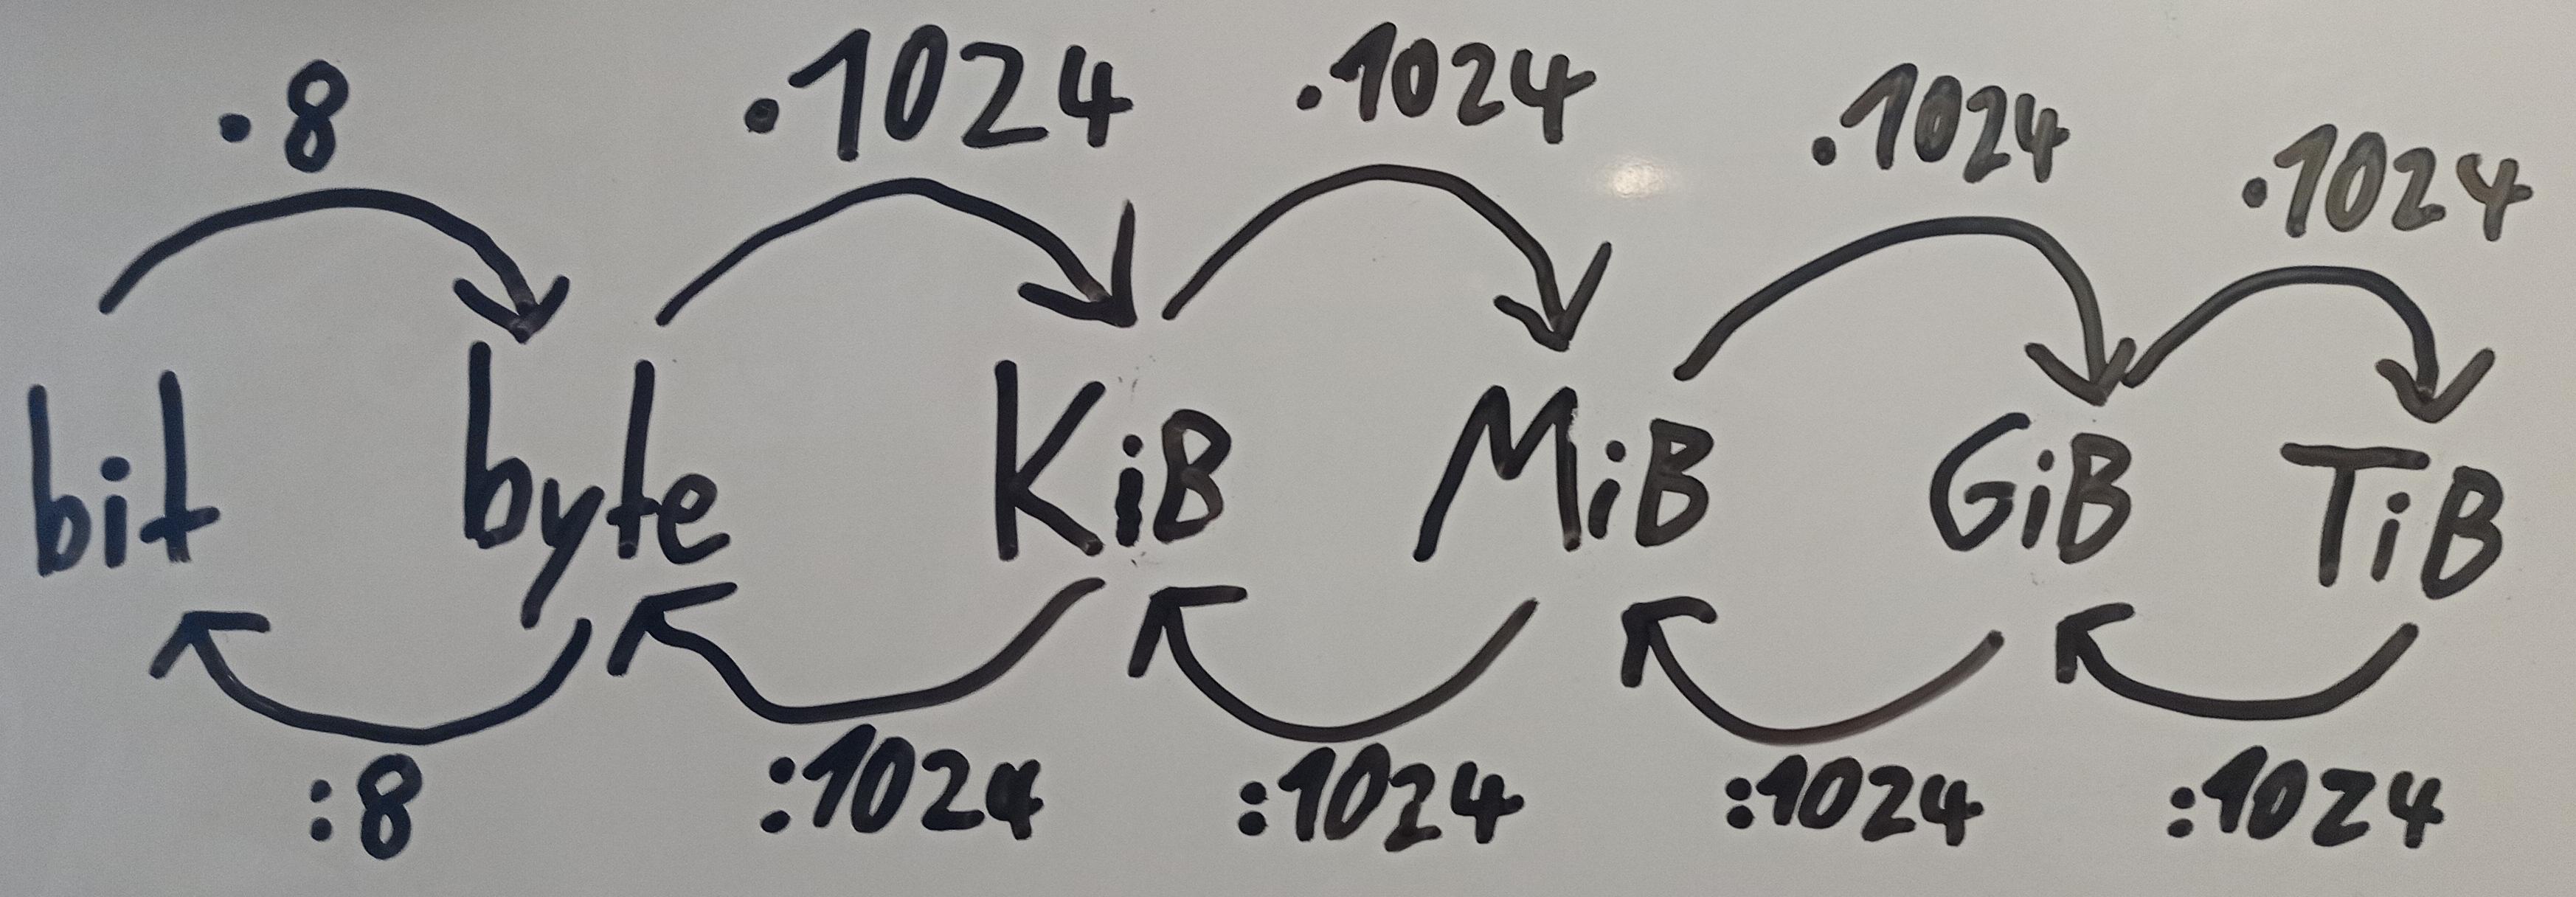 .8 .1024 .1024 .1024 .1024
bit byte KiB MiB GiB TiB
:8 :1024 :1024 :1024 :1024